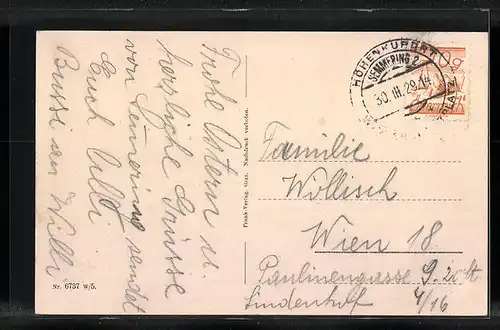 Frohe Ostern u.
herzliche Grüsse
vom Semmering sendet
Euch Willi
Bussi an Willi
Nr. 6737 w/5.
Frank-Verlag, Graz. Nachdruck verboten.
HÖHENKURORT
SEMMERING 2
30. III. 29. 14
Familie
Wollisch
Wien 18
Paulinengasse 9.
Lindenhof 4/16